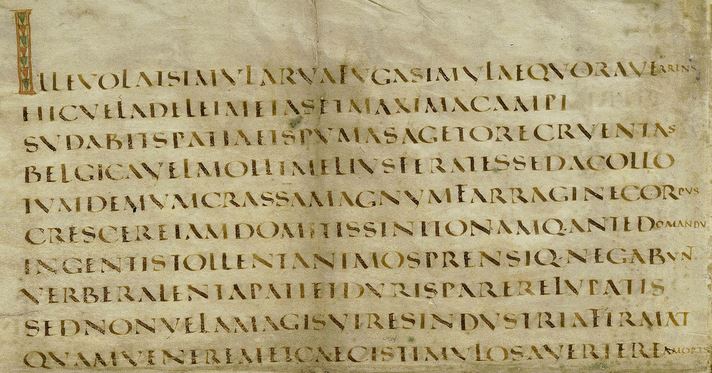 ILLEVOLATSIMVLARVAFVGASIMVLAEQVORAVERRENS
HICVELADELEIMETASETMAXIMACAMPI
SVDABITSPATIAETSPVMASAGETORECRVENTAS
BELGICAVELMOLLIMELIVSFERATESSEDACOLLO
TVMDEMVMCRASSAMAGNVMFARRAGINECORPVS
CRESCEREIAMDOMITISSINITONAMQ·ANTEDOMANDV
INGENTISTOLLENTANIMOSPRENSIQ·NEGABVNT
VERBERALENTAPATIETDVRISPARERELVPATIS
SEDNONVLLAMAGISVIRESINDVSTRIAFIRMAT
QVAMVENEREMETCAECISTIMVLOSAVERTEREAMORIS